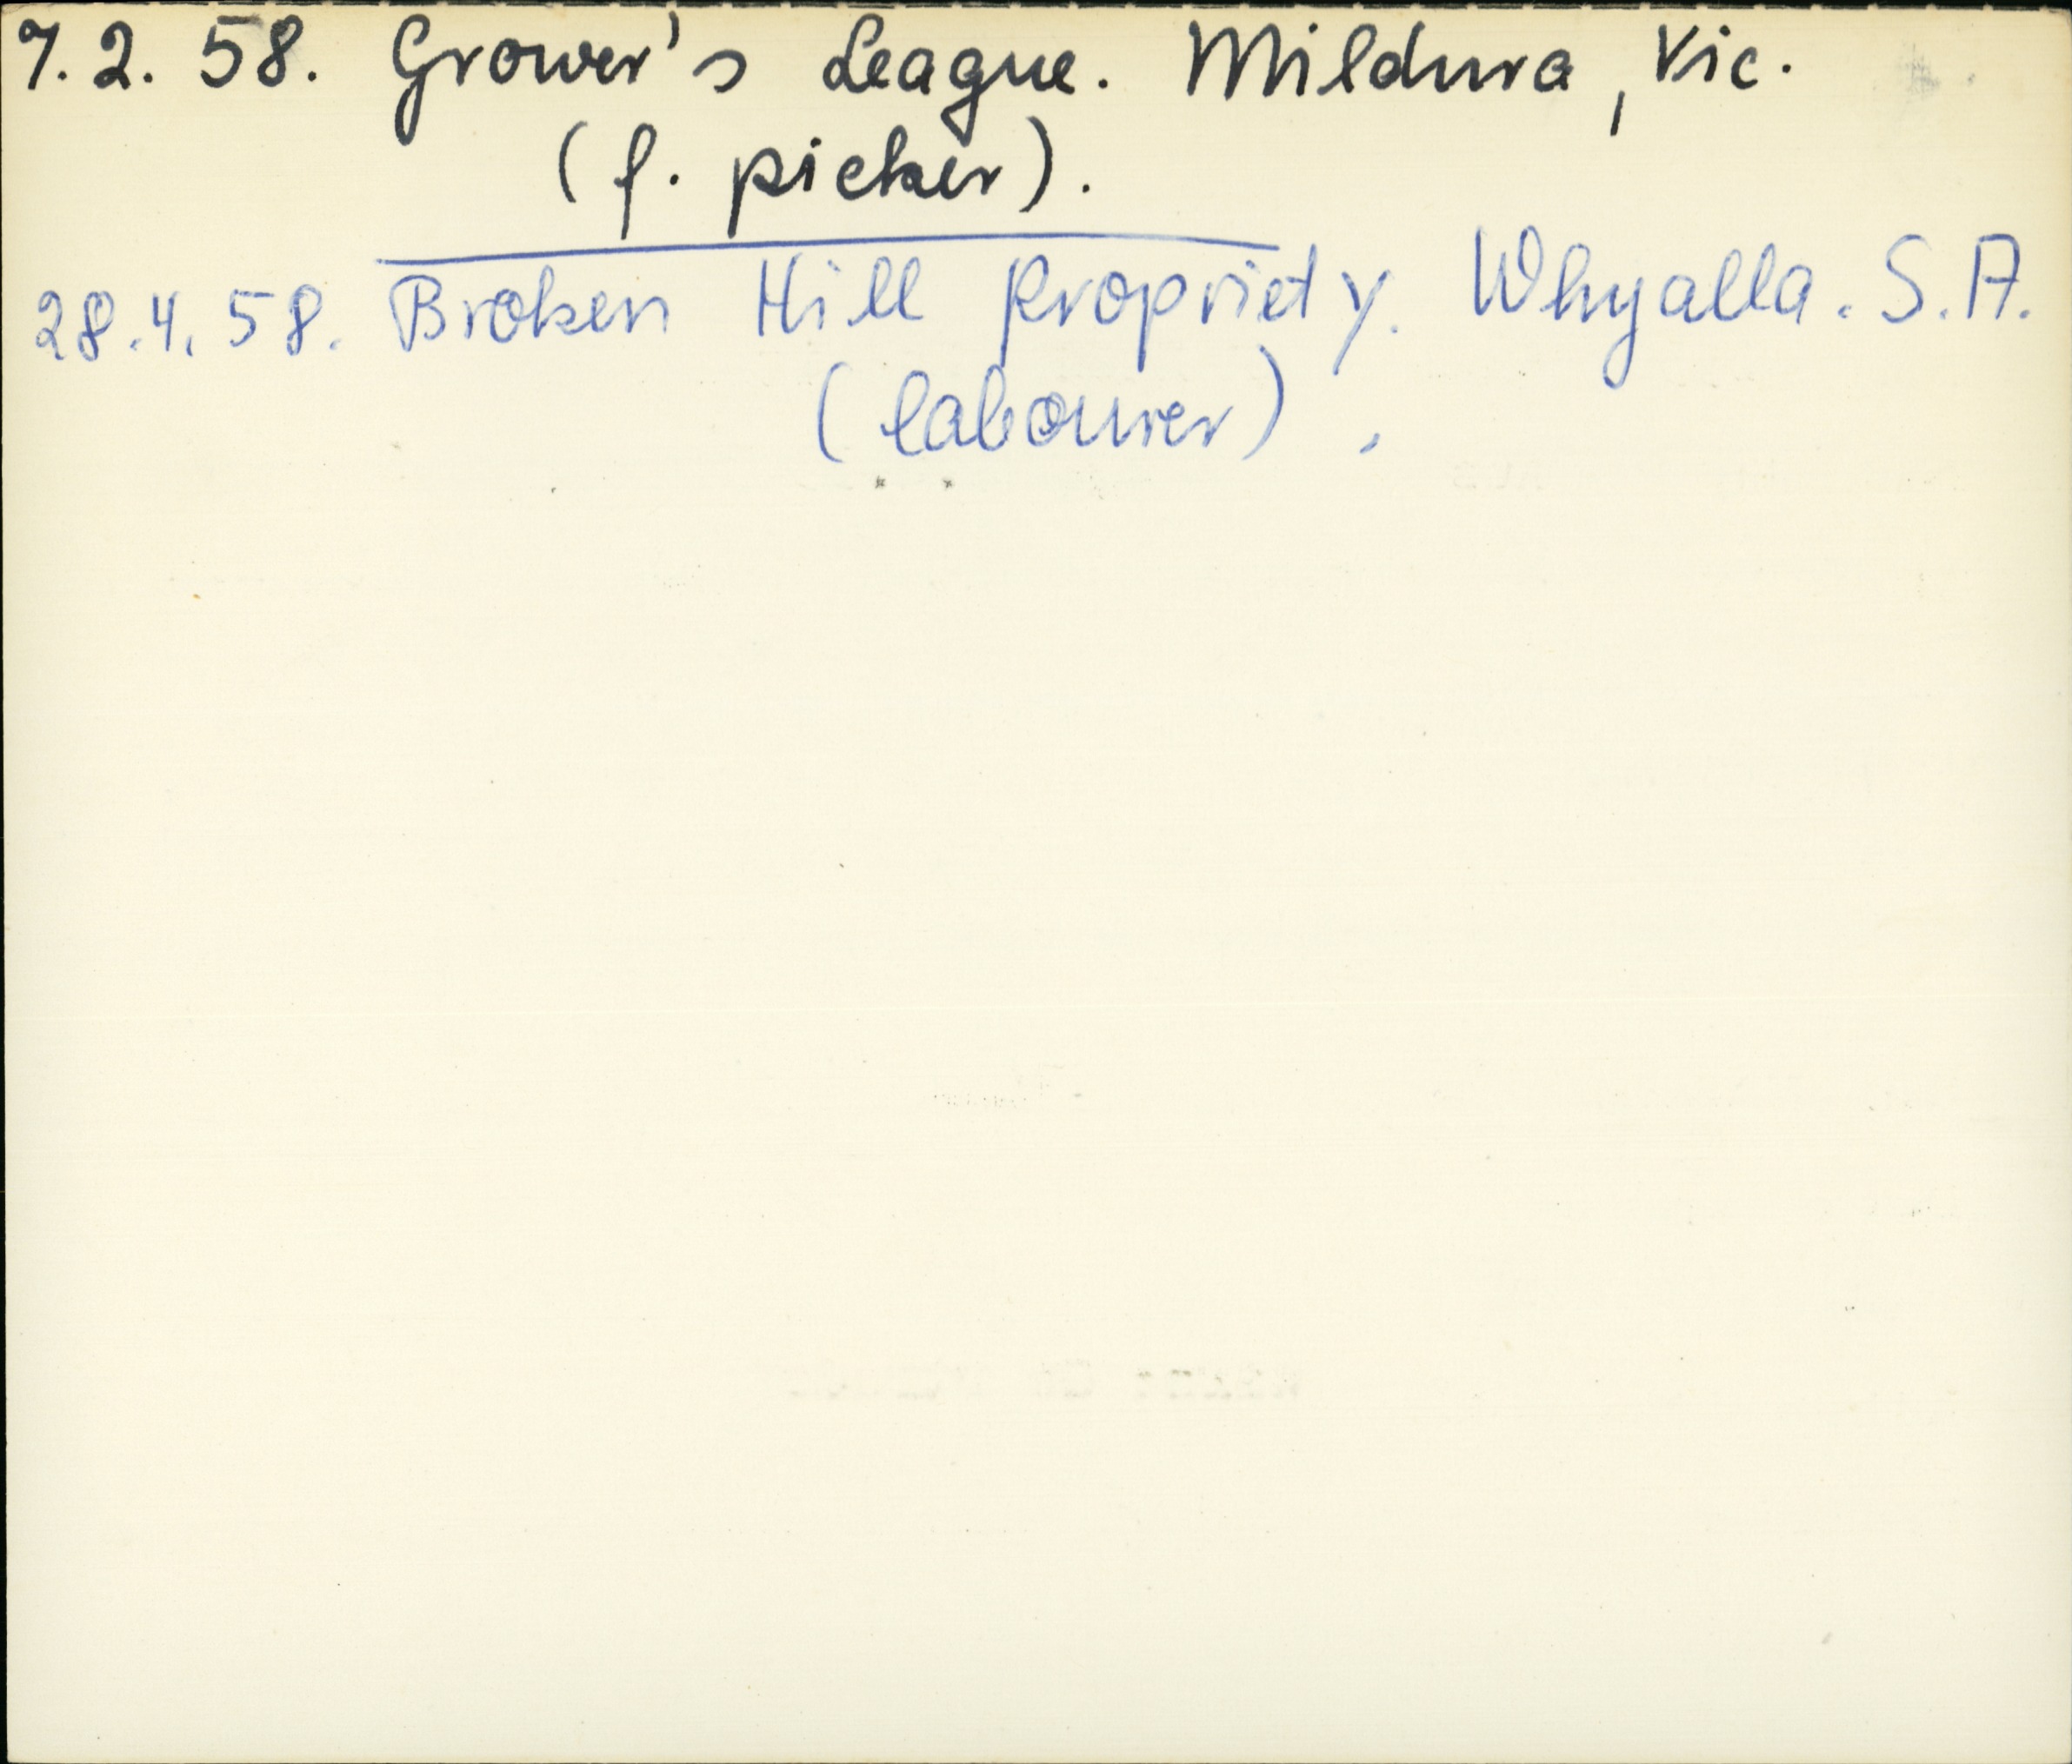 7.2.58. Grower's League. Mildura, Vic.
(f. picker).
28.4.58. Broken Hill Propriety. Whyalla. S.A.
(labourer).